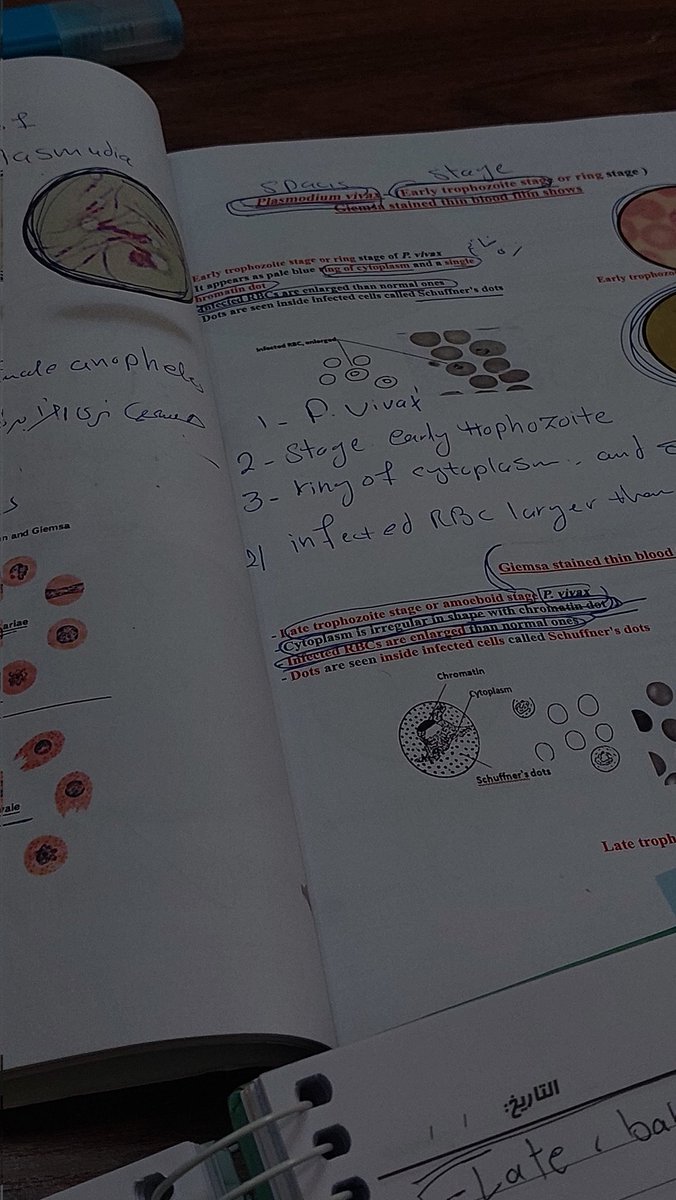 female anopheles
n and Giemsa
ariae
vale
Spacis Stage
Plasmodium vivax- (Early trophozoite stage or ring stage )
Giemsa stained thin blood film shows
Early trophozoite stage or ring stage of P. vivax
It appears as pale blue ring of cytoplasm and a single
chromatin dot
Infected RBCs are enlarged than normal ones
- Dots are seen inside infected cells called Schuffner's dots
Early trophozo
Infected RBC, enlarged
1- P. Vivax
2- Stage early trophozoite
3- ring of cytoplasm and
2) infected RBC larger than
Giemsa stained thin blood
- Late trophozoite stage or amoeboid stage P. vivax
- Cytoplasm is irregular in shape with chromatin dot
- Infected RBCs are enlarged than normal ones
- Dots are seen inside infected cells called Schuffner's dots
Chromatin
Cytoplasm
Schuffner's dots
Late troph
التاريخ:
/ /
Late, bal